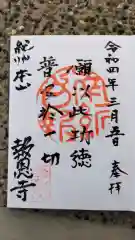 令和四年三月五日
奉拝
願以此功徳
普及於一切
紀州本山
報恩寺